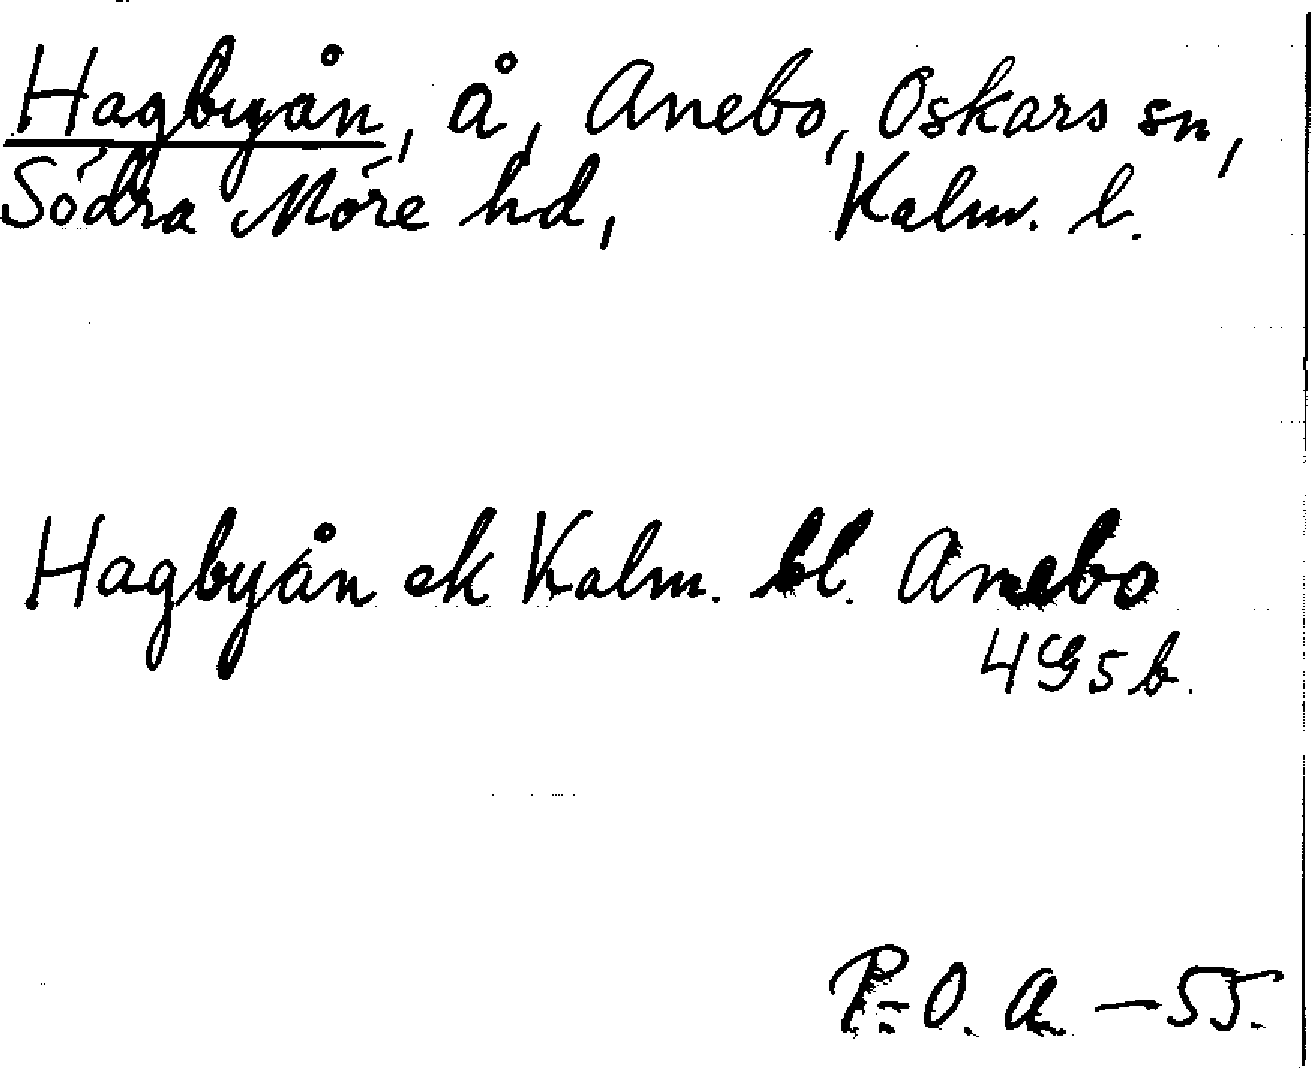 Hagbyån, å, Anebo, Oskars sn,
Södra Möre hd, Kalm. l.
Hagbyån ek Kalm. bl. Anebo
4G5b.
P.-O. A. - 55.